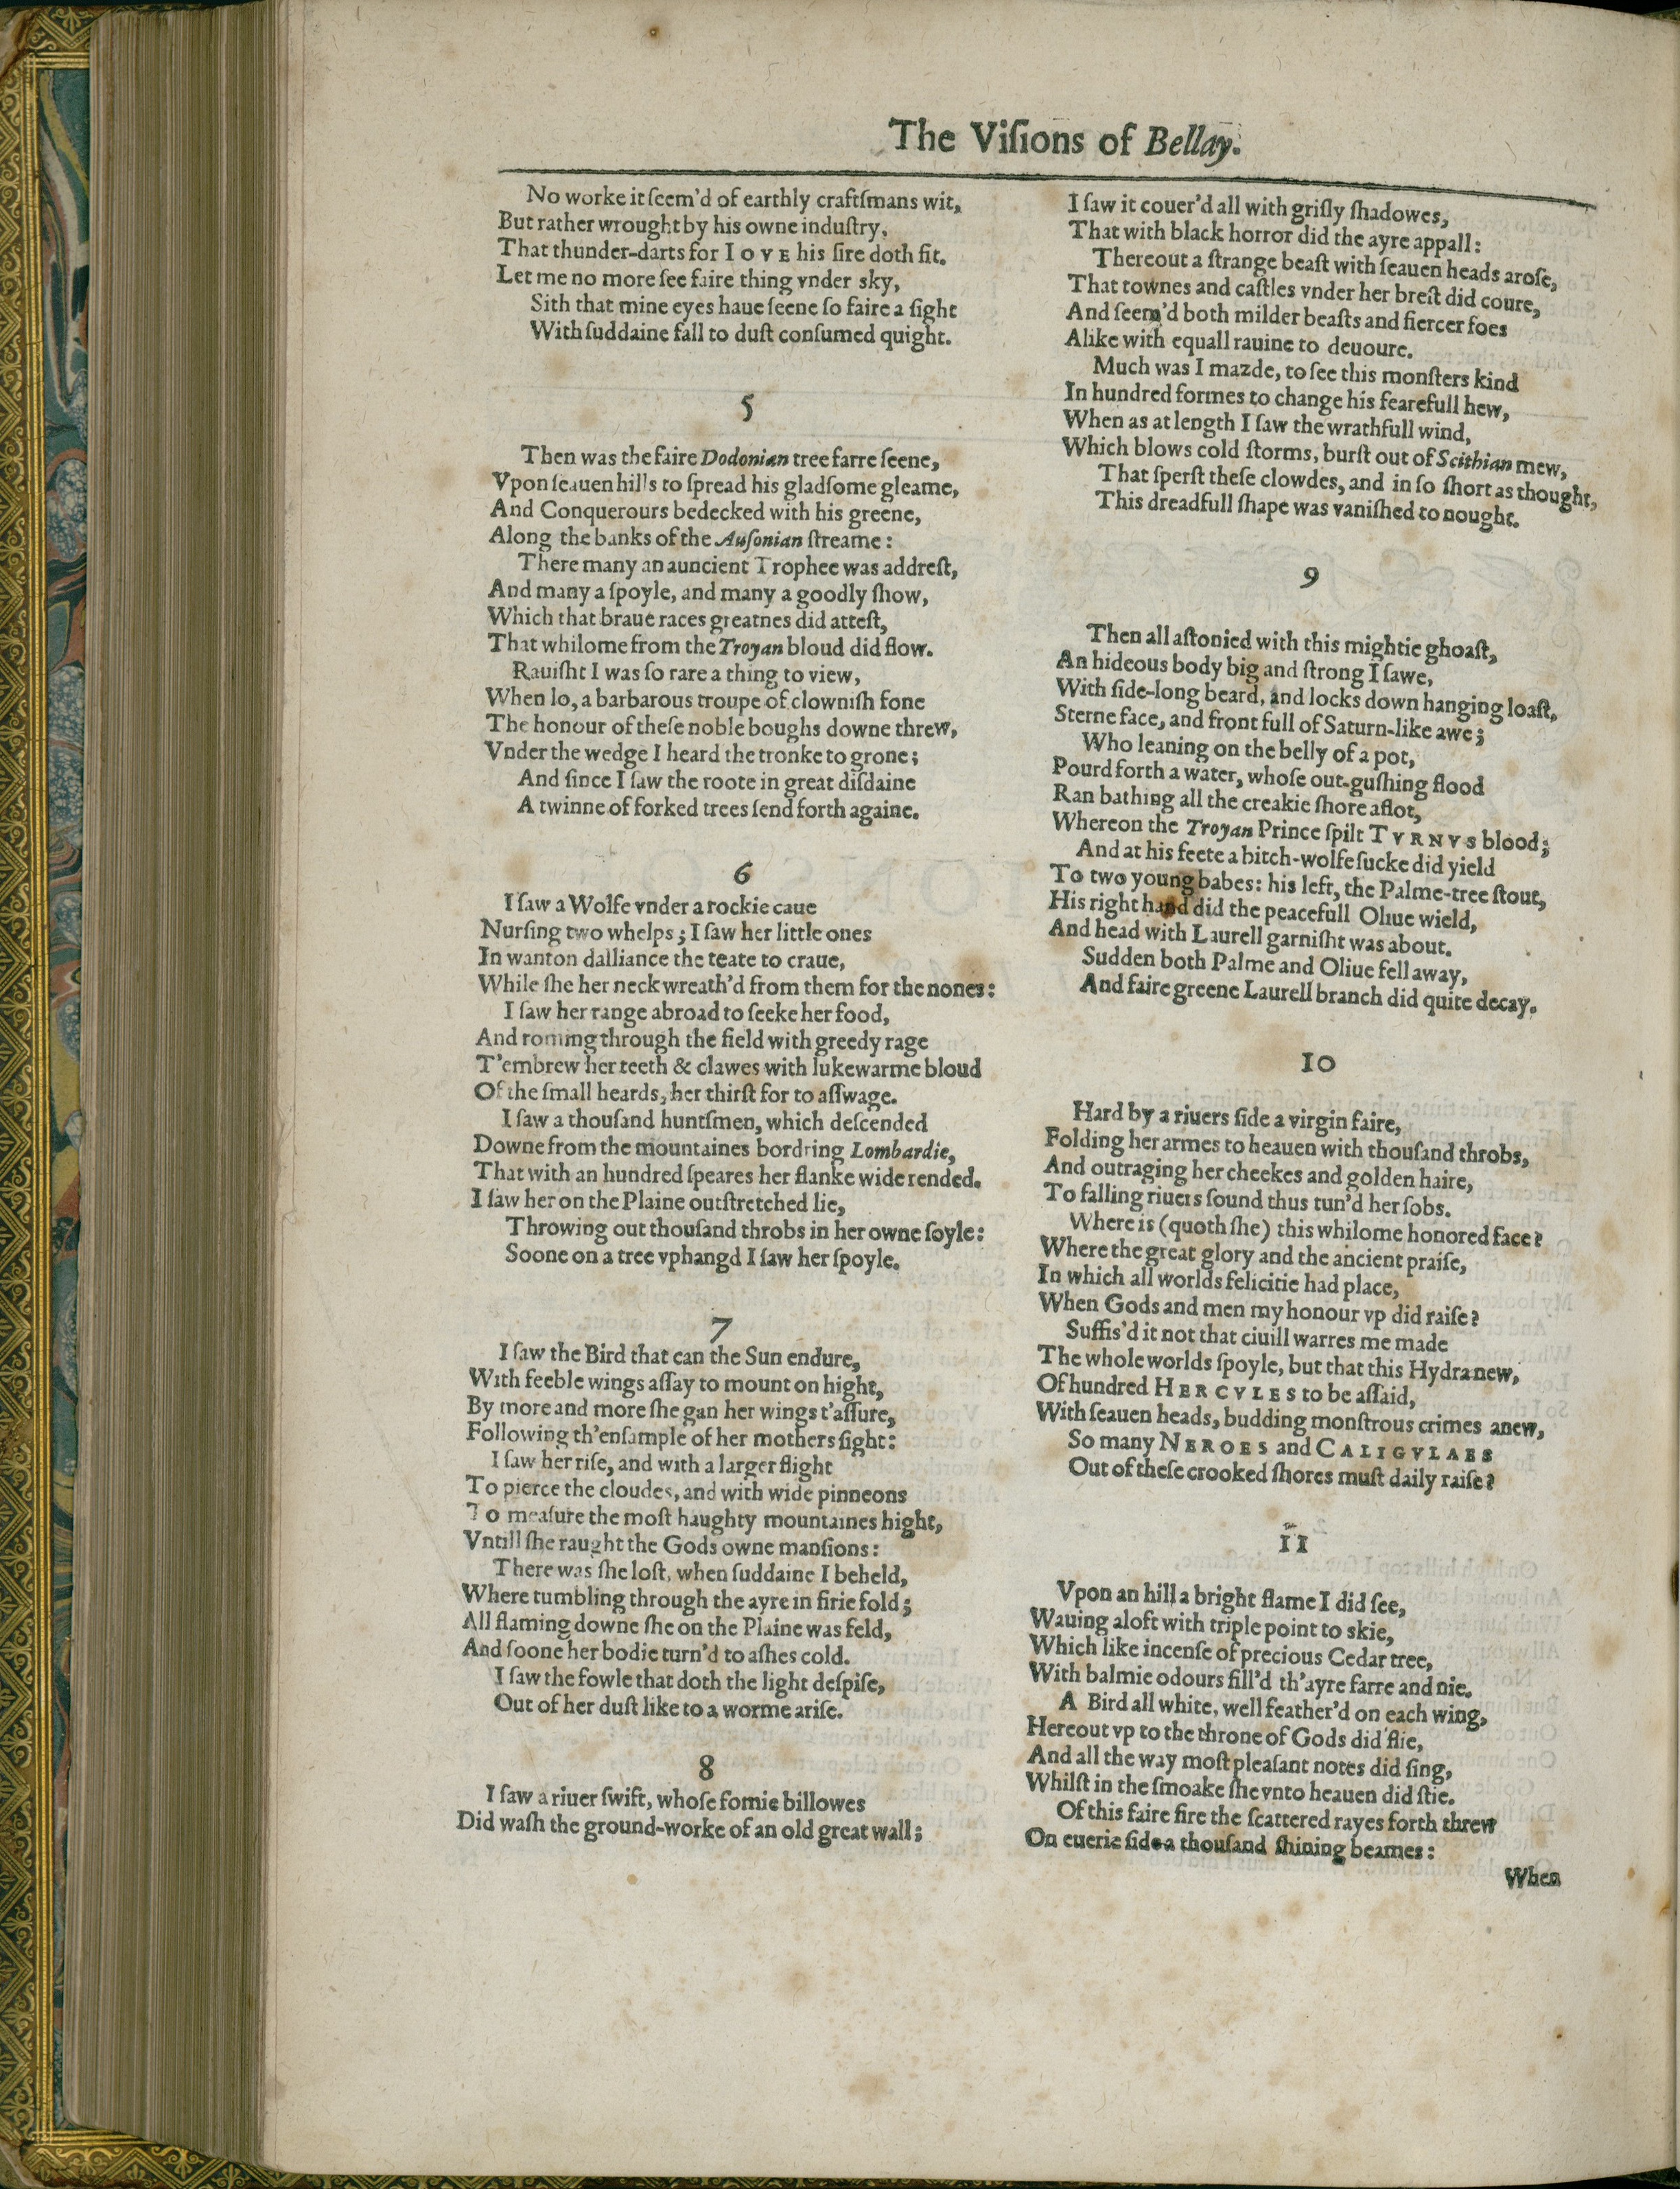 The Viſions of Bellay.
No worke it ſeem'd of earthly craftſmans wit,
But rather wrought by his owne induſtry,
That thunder-darts for IOVE his ſire doth fit.
Let me no more ſee faire thing vnder sky,
Sith that mine eyes haue ſeene ſo faire a ſight
With ſuddaine fall to duſt conſumed quight.
5
Then was the faire Dodonian tree farre ſeene,
Vpon ſeauen hills to ſpread his gladſome gleame,
And Conquerours bedecked with his greene,
Along the banks of the Auſonian ſtreame:
There many an auncient Trophee was addreſt,
And many a ſpoyle, and many a goodly ſhow,
Which that braue races greatnes did atteſt,
That whilome from the Troyan bloud did flow.
Rauiſht I was ſo rare a thing to view,
When lo, a barbarous troupe of clowniſh fone
The honour of theſe noble boughs downe threw,
Vnder the wedge I heard the tronke to grone;
And ſince I ſaw the roote in great diſdaine
A twinne of forked trees ſend forth againe.
6
I ſaw a Wolfe vnder a rockie caue
Nurſing two whelps; I ſaw her little ones
In wanton dalliance the teate to craue,
While ſhe her neck wreath'd from them for the nones:
I ſaw her range abroad to ſeeke her food,
And roming through the field with greedy rage
T'embrew her teeth & clawes with lukewarme bloud
Of the ſmall heards, her thirſt for to aſſwage.
I ſaw a thouſand huntſmen, which deſcended
Downe from the mountaines bordring Lombardie,
That with an hundred ſpeares her flanke wide rended.
I ſaw her on the Plaine outſtretched lie,
Throwing out thouſand throbs in her owne ſoyle:
Soone on a tree vphangd I ſaw her ſpoyle.
7
I ſaw the Bird that can the Sun endure,
With feeble wings aſſay to mount on hight,
By more and more ſhe gan her wings t'aſſure,
Following th'enſample of her mothers ſight:
I ſaw her riſe, and with a larger flight
To pierce the cloudes, and with wide pinneons
To meaſure the moſt haughty mountaines hight,
Vntill ſhe raught the Gods owne manſions:
There was ſhe loſt, when ſuddaine I beheld,
Where tumbling through the ayre in firie fold;
All flaming downe ſhe on the Plaine was feld,
And ſoone her bodie turn'd to aſhes cold.
I ſaw the fowle that doth the light deſpiſe,
Out of her duſt like to a worme ariſe.
8
I ſaw a riuer ſwift, whoſe fomie billowes
Did waſh the ground-worke of an old great wall;
I ſaw it couer'd all with griſly ſhadowes,
That with black horror did the ayre appall:
Thereout a ſtrange beaſt with ſeauen heads aroſe,
That townes and caſtles vnder her breſt did coure,
And ſeem'd both milder beaſts and fiercer foes
Alike with equall rauine to deuoure.
Much was I mazde, to ſee this monſters kind
In hundred formes to change his fearefull hew,
When as at length I ſaw the wrathfull wind,
Which blows cold ſtorms, burſt out of Scithian mew,
That ſperſt theſe clowdes, and in ſo ſhort as thought,
This dreadfull ſhape was vaniſhed to nought.
9
Then all aſtonied with this mightie ghoaſt,
An hideous body big and ſtrong I ſawe,
With ſide-long beard, and locks down hanging loaſt,
Sterne face, and front full of Saturn-like awe;
Who leaning on the belly of a pot,
Pourd forth a water, whoſe out-guſhing flood
Ran bathing all the creakie ſhore aflot,
Whereon the Troyan Prince ſpilt TVRNVS blood;
And at his feete a bitch-wolfe ſucke did yield
To two young babes: his left, the Palme-tree ſtout,
His right hand did the peacefull Oliue wield,
And head with Laurell garniſht was about.
Sudden both Palme and Oliue fell away,
And faire greene Laurell branch did quite decay.
10
Hard by a riuers ſide a virgin faire,
Folding her armes to heauen with thouſand throbs,
And outraging her cheekes and golden haire,
To falling riuers ſound thus tun'd her ſobs.
Where is (quoth ſhe) this whilome honored face?
Where the great glory and the ancient praiſe,
In which all worlds felicitie had place,
When Gods and men my honour vp did raiſe?
Suffis'd it not that ciuill warres me made
The whole worlds ſpoyle, but that this Hydra new,
Of hundred HERCVLES to be aſſaid,
With ſeauen heads, budding monſtrous crimes anew,
So many NEROES and CALIGVLAES
Out of theſe crooked ſhores muſt daily raiſe?
11
Vpon an hill a bright flame I did ſee,
Wauing aloft with triple point to skie,
Which like incenſe of precious Cedar tree,
With balmie odours fill'd th'ayre farre and nie.
A Bird all white, well feather'd on each wing,
Hereout vp to the throne of Gods did flie,
And all the way moſt pleaſant notes did ſing,
Whilſt in the ſmoake ſhe vnto heauen did ſtie.
Of this faire fire the ſcattered rayes forth threw
On euerie ſide a thouſand ſhining beames:
When